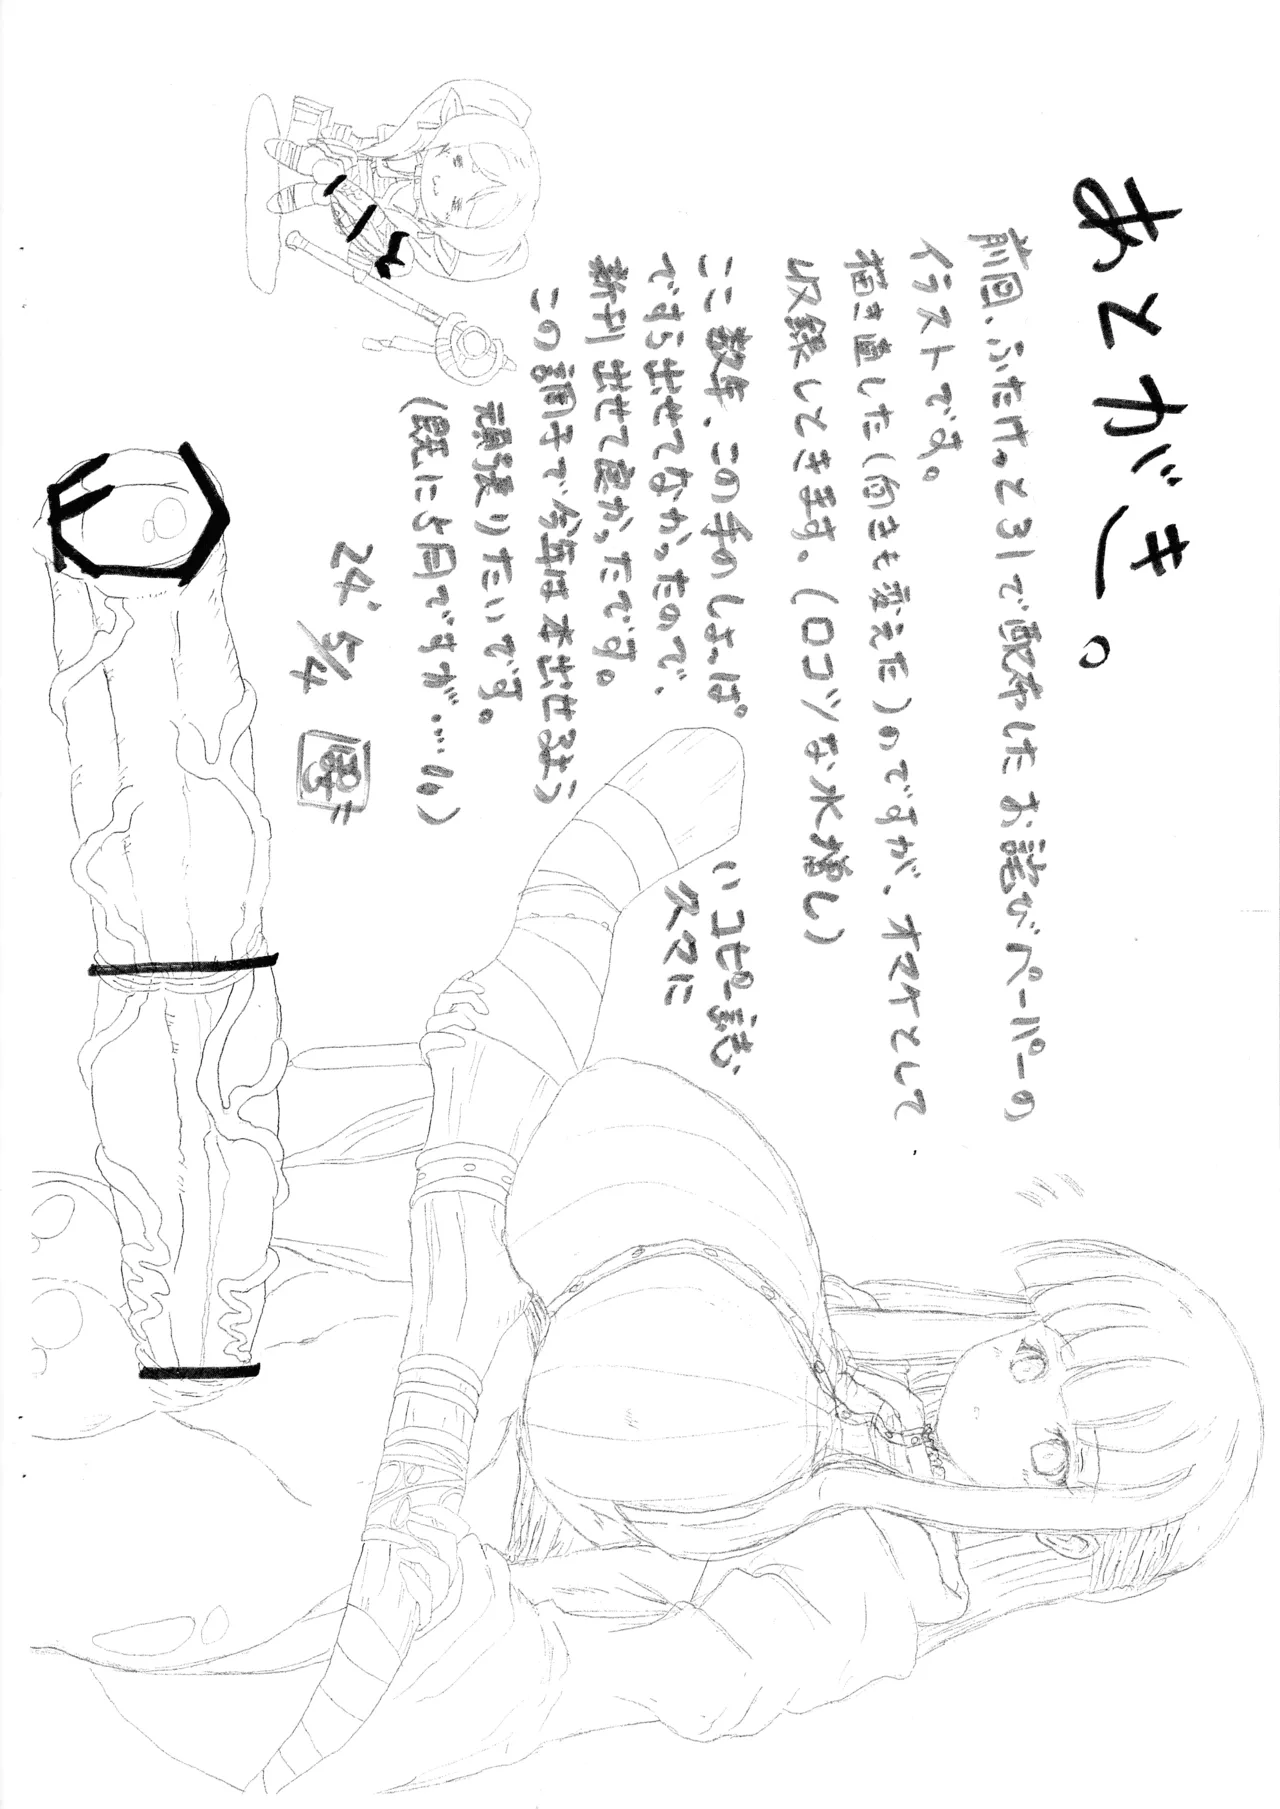 あとがき。
前回、ふたけっと31で配布したお詫びペーパーの
イラストです。
描き直した(向きも変えた)のですが、オマケとして
収録しときます。(ロコツな水増し)
ここ数年、この手のしょっぱい コピー誌も
ですら出せてなかったので、 久々に
新刊出せて良かったです。
この調子で今年は本出せるよう
頑張りたいです。
(既に5月ですが…⋯)
24' 5/4